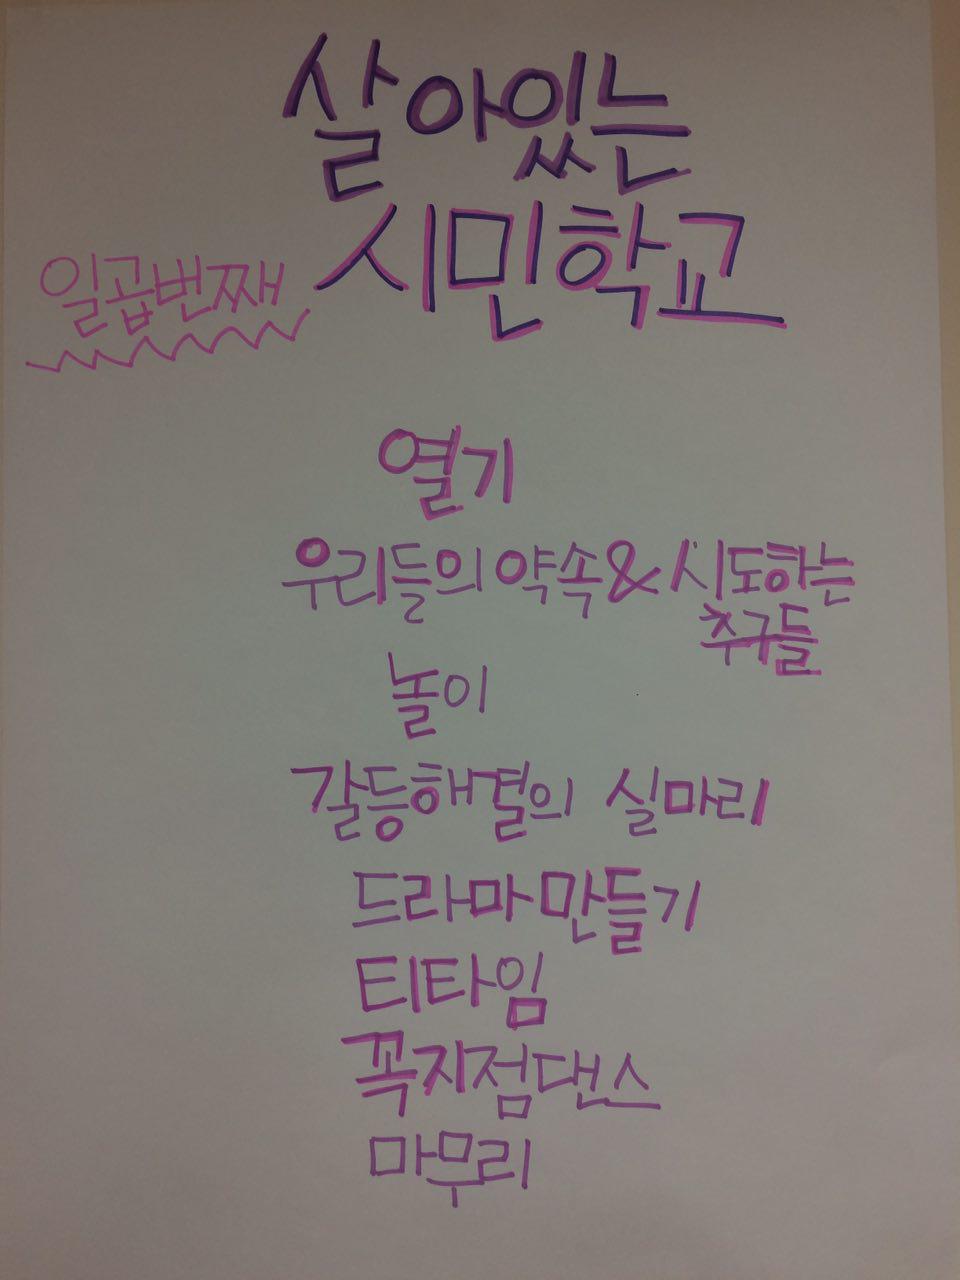 살아있는
시민학교
일곱번째
열기
우리들의 약속 & 시도하는
추구들
놀이
갈등해결의 실마리
드라마 만들기
티타임
꼭지점댄스
마무리